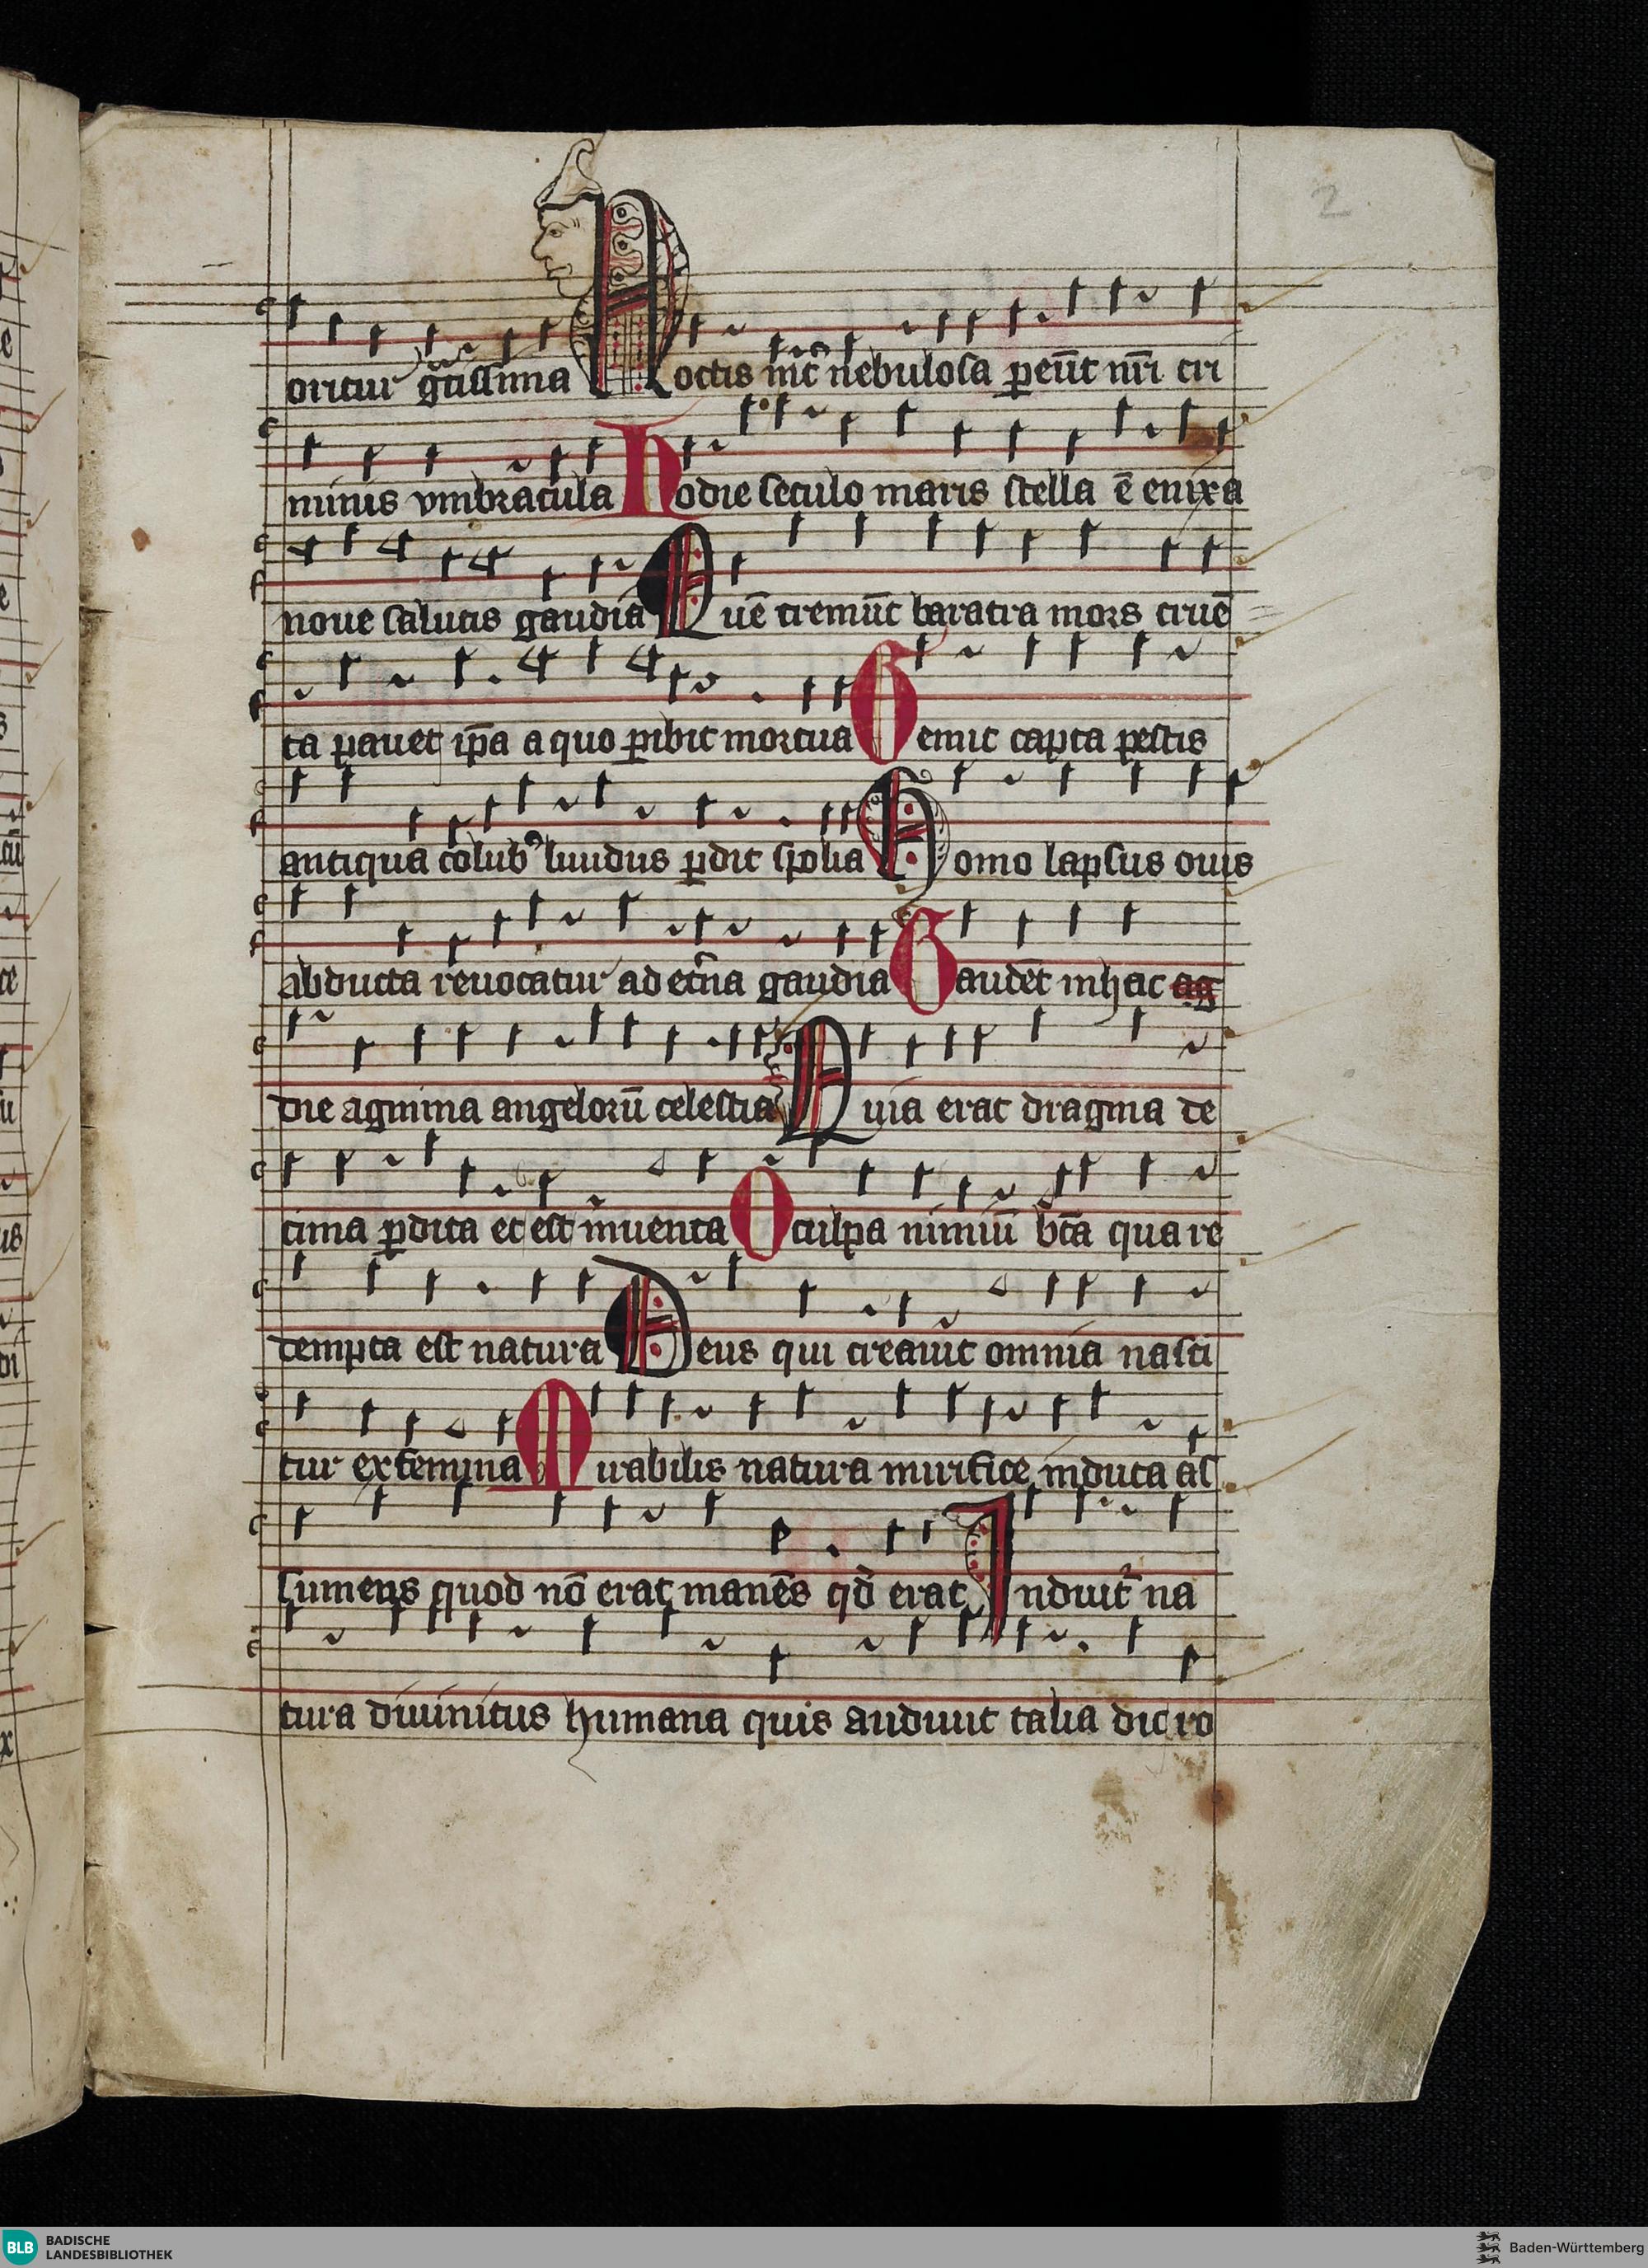 2
oritur gᵃtissima Noctis int̄ nebulosa peūt nr̄i cri
minis vmbracula Hodie seculo maris stella ē enixa
noue salutis gaudia Quē tremūt baratra mors cruē
ta pauet ip̄a a quo ꝑibit mortua Gemit capta pestis
antiqua colubꝰ liuidus ꝑdit spolia Homo lapsus ouis
abducta reuocatur ad et̄na gaudia Gaudēt in hac ag
die agmina angelorū celestia Quia erat dragma de
cima ꝑdita et est inuenta O culpa nimiū bt̄a qua re
dempta est natura Deus qui creauit omnia nasci
tur ex femina Mirabilis natura mirifice induta as
sumens quod nō erat manēs qd̄ erat Induit̉ na
tura diuinitus humana quis audiuit talia dic ro
BLB BADISCHE
LANDESBIBLIOTHEK
Baden-Württemberg